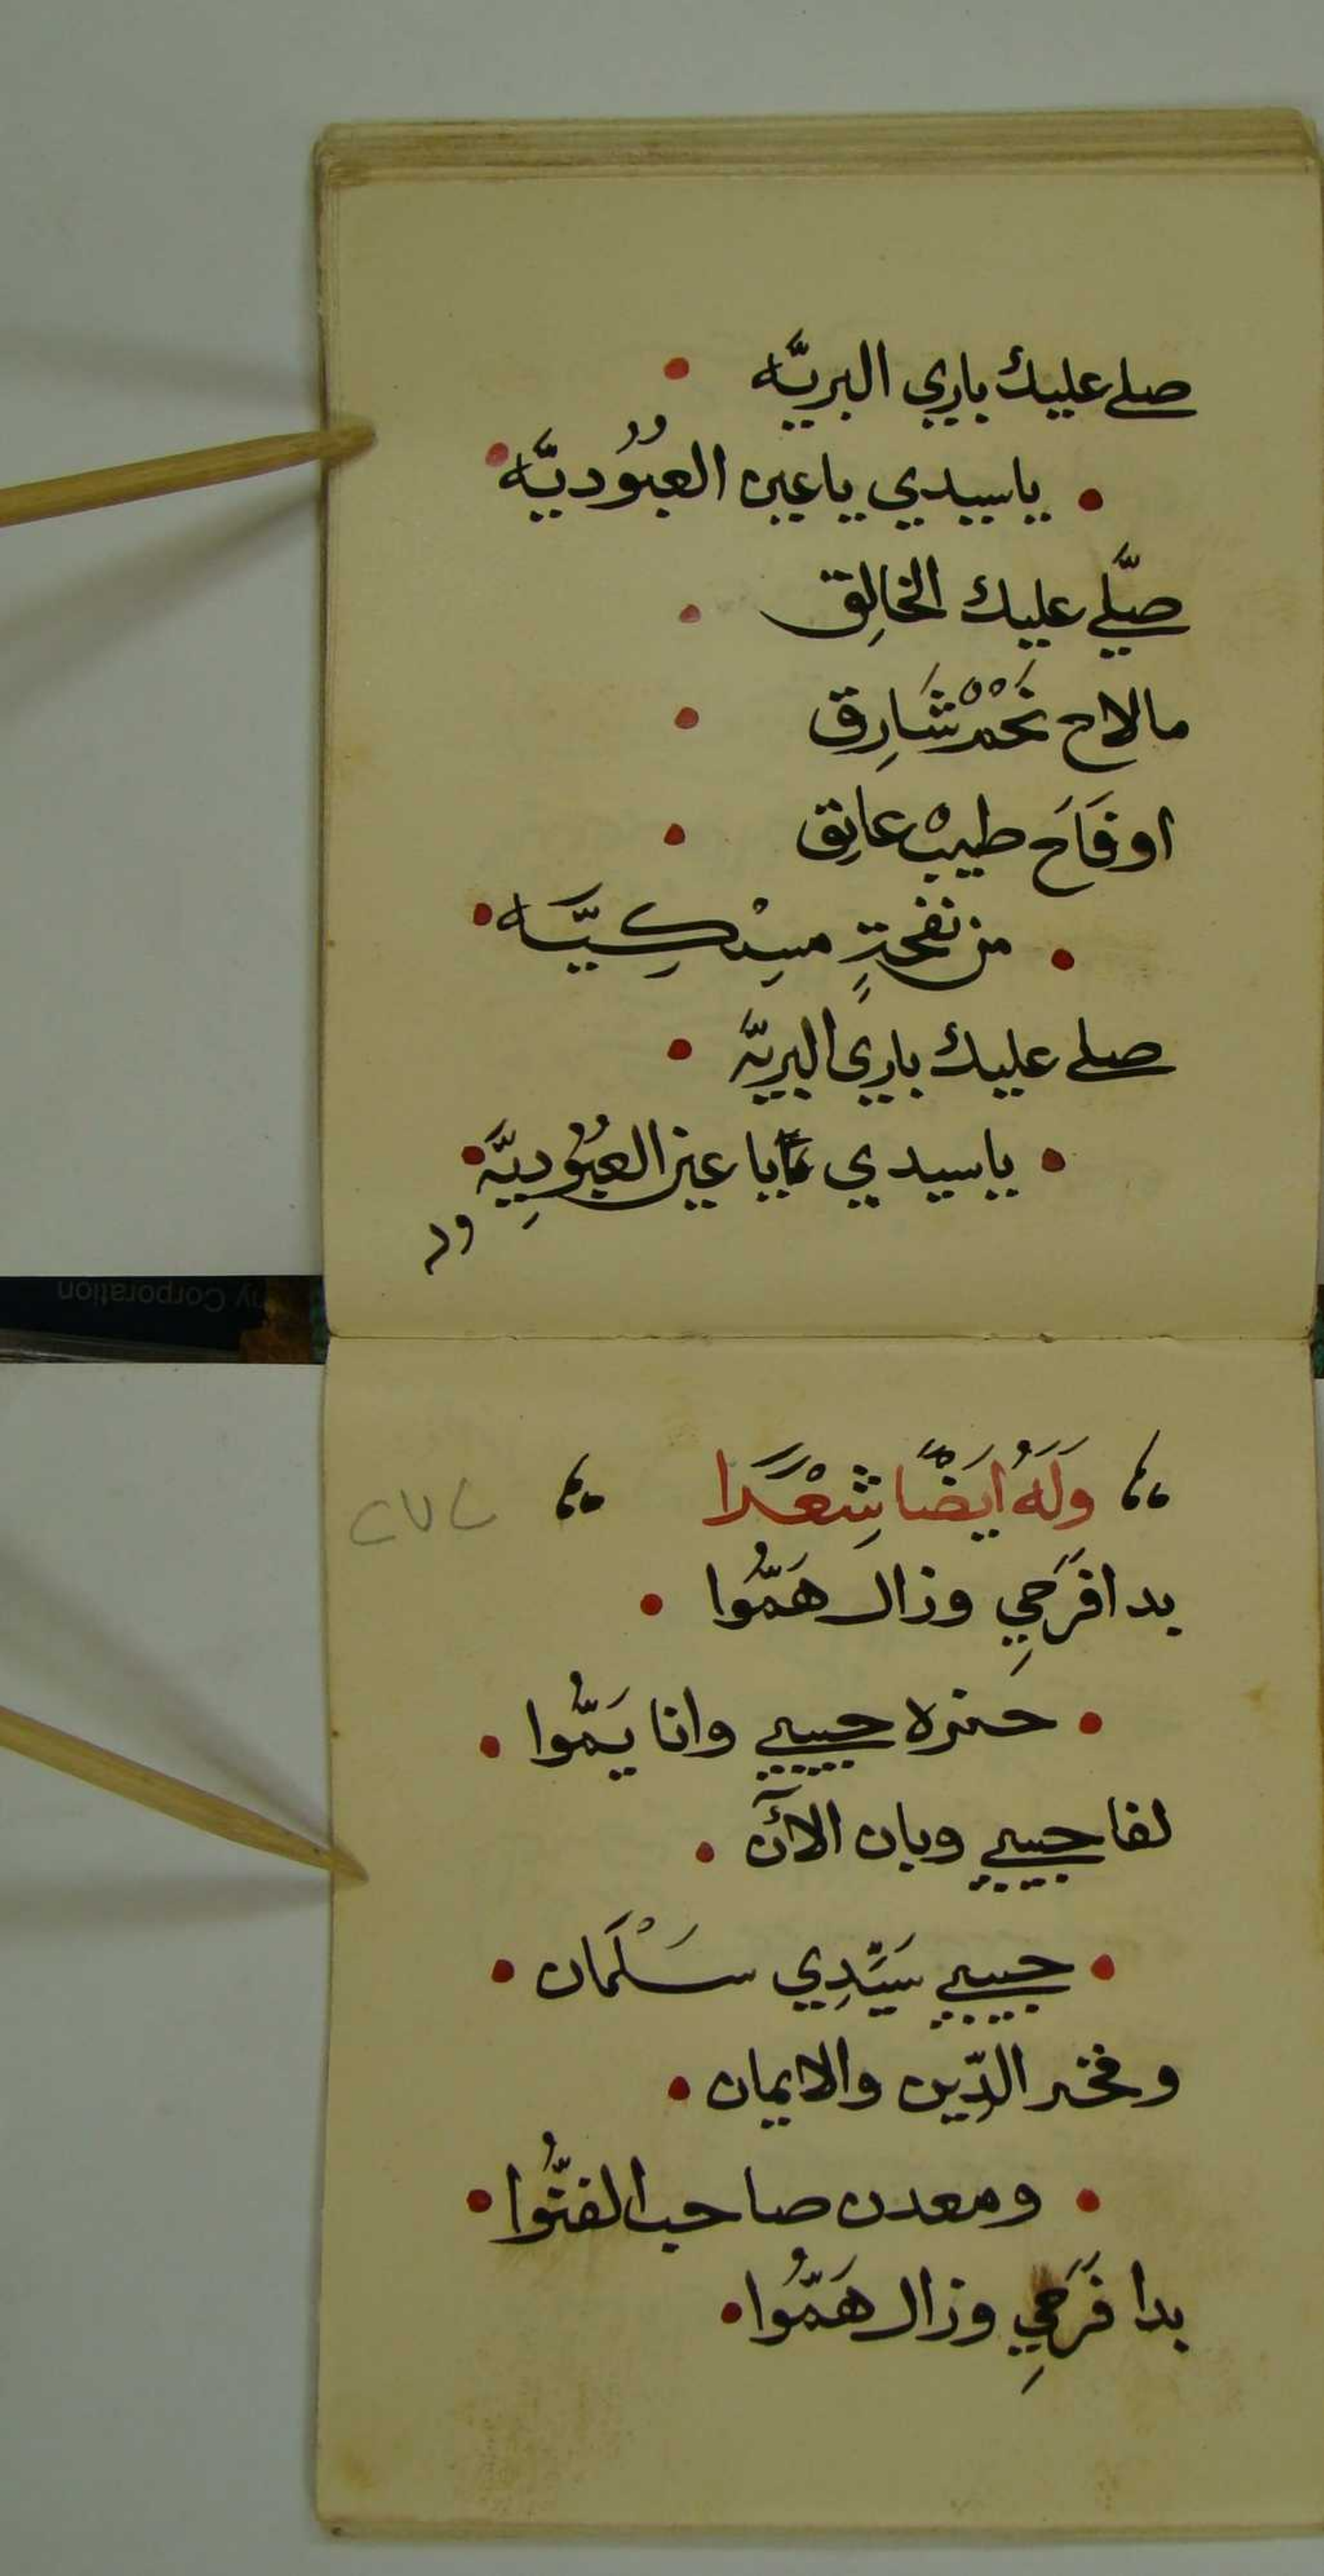 صلے عليك باري البريَّه
ياسيدي ياعين العبُوديَّه
صلّے عليك الخالِق
مالاح نَجْمْ شَارِق
اوفَاحَ طيبْ عابِق
من نفحةٍ مسِْكِيَّه
صلے عليك باري البريَّه
ياسيدي يا عين العبُودِيَّه
وَلَهُ ايَضًا شِعْرًا
بدا فَرَحِي وزال هَمُّوا
حبيبي وانا يَمُّوا
لفا حبيبي وبان الآن
حبيبي سَيّدِي سَلْمَان
وفخر الدِّين والايمان
ومعدن صاحب الفتُّوا
بدا فَرَحِي وزال هَمُّوا
ny Corporation